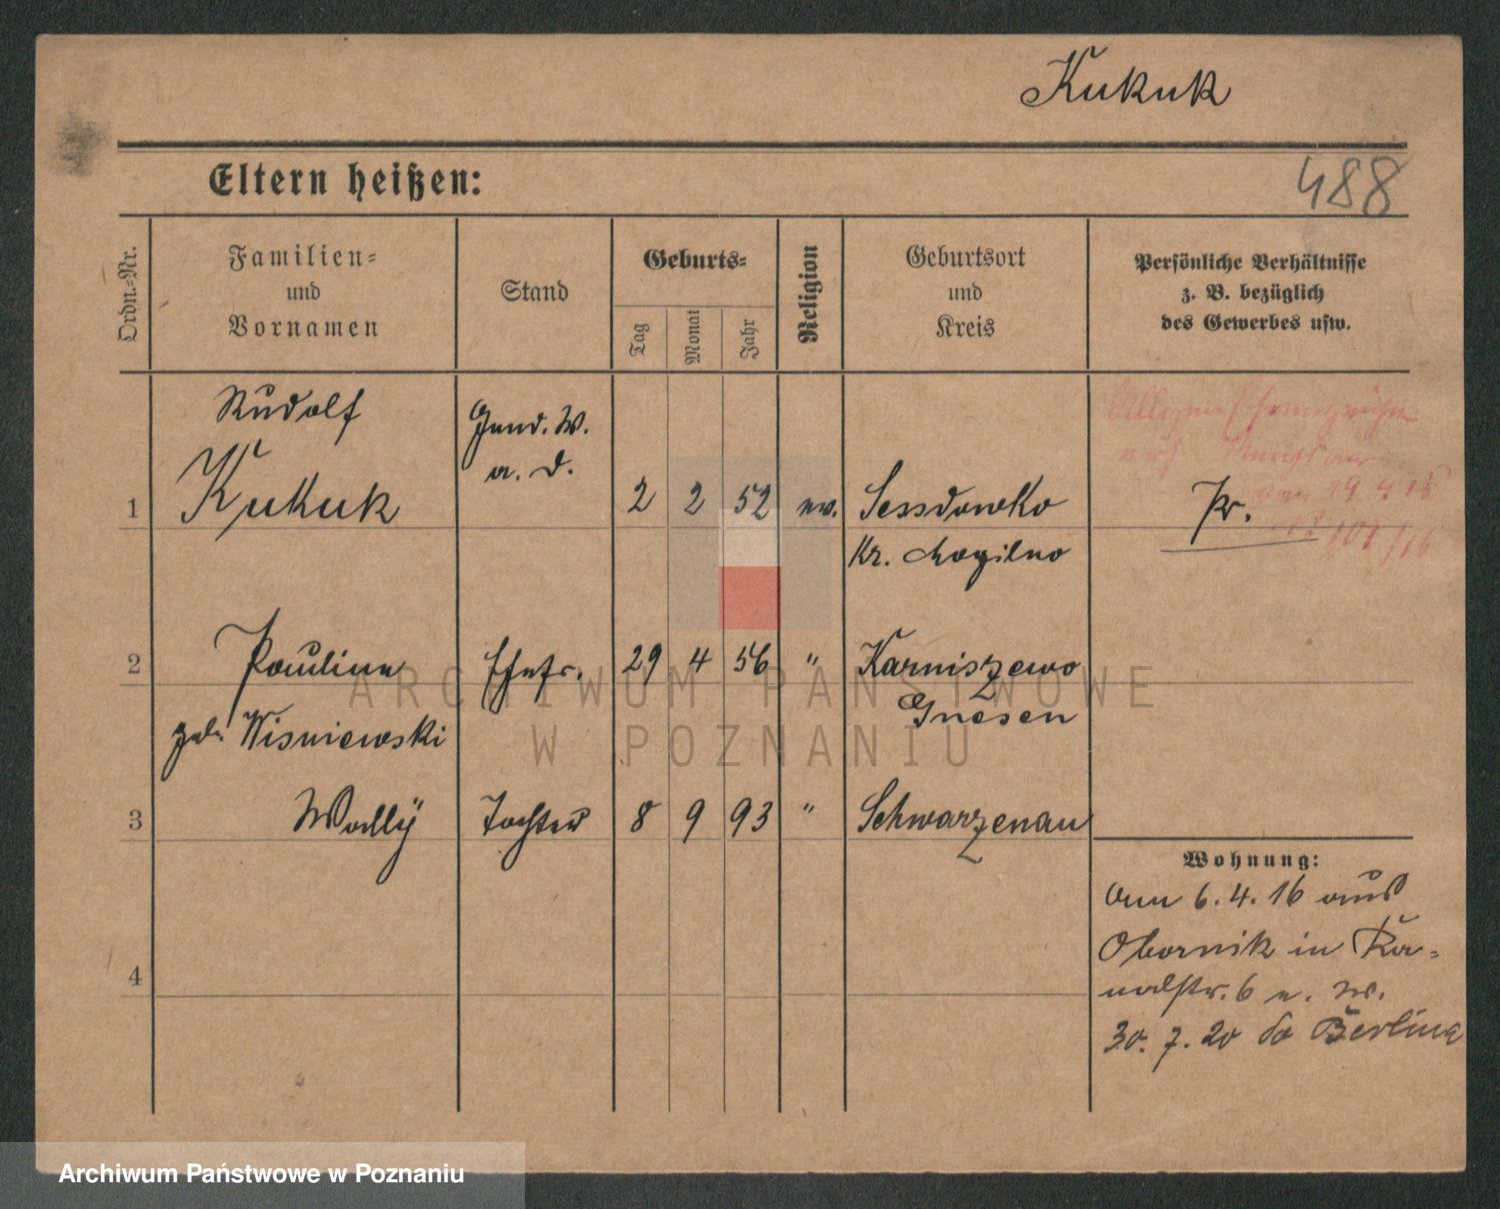 Kukuk
488
Eltern heißen:
Ordn.-Nr.
Familien-
und
Vornamen
Stand
Geburts-
Tag
Monat
Jahr
Religion
Geburtsort
und
Kreis
Persönliche Verhältnisse
z. B. bezüglich
des Gewerbes usw.
Rudolf
Gend. W.
a. D.
1 Kukuk 2 2 52 ev. Sessdowko Pr.
Kr. Mogilno
19 4 16
101/16
2 Pauline Ehefr. 29 4 56 " Karniszewo
Gnesen
geb. Wisniewski
3 Wally Tochter 8 9 93 " Schwarzenau
4
Wohnung:
Am 6. 4. 16 aus
Obornik in Ka-
nalstr. 6 e. W.
30. 7. 20 do Berlina
ARCHIWUM PAŃSTWOWE
W POZNANIU
Archiwum Państwowe w Poznaniu